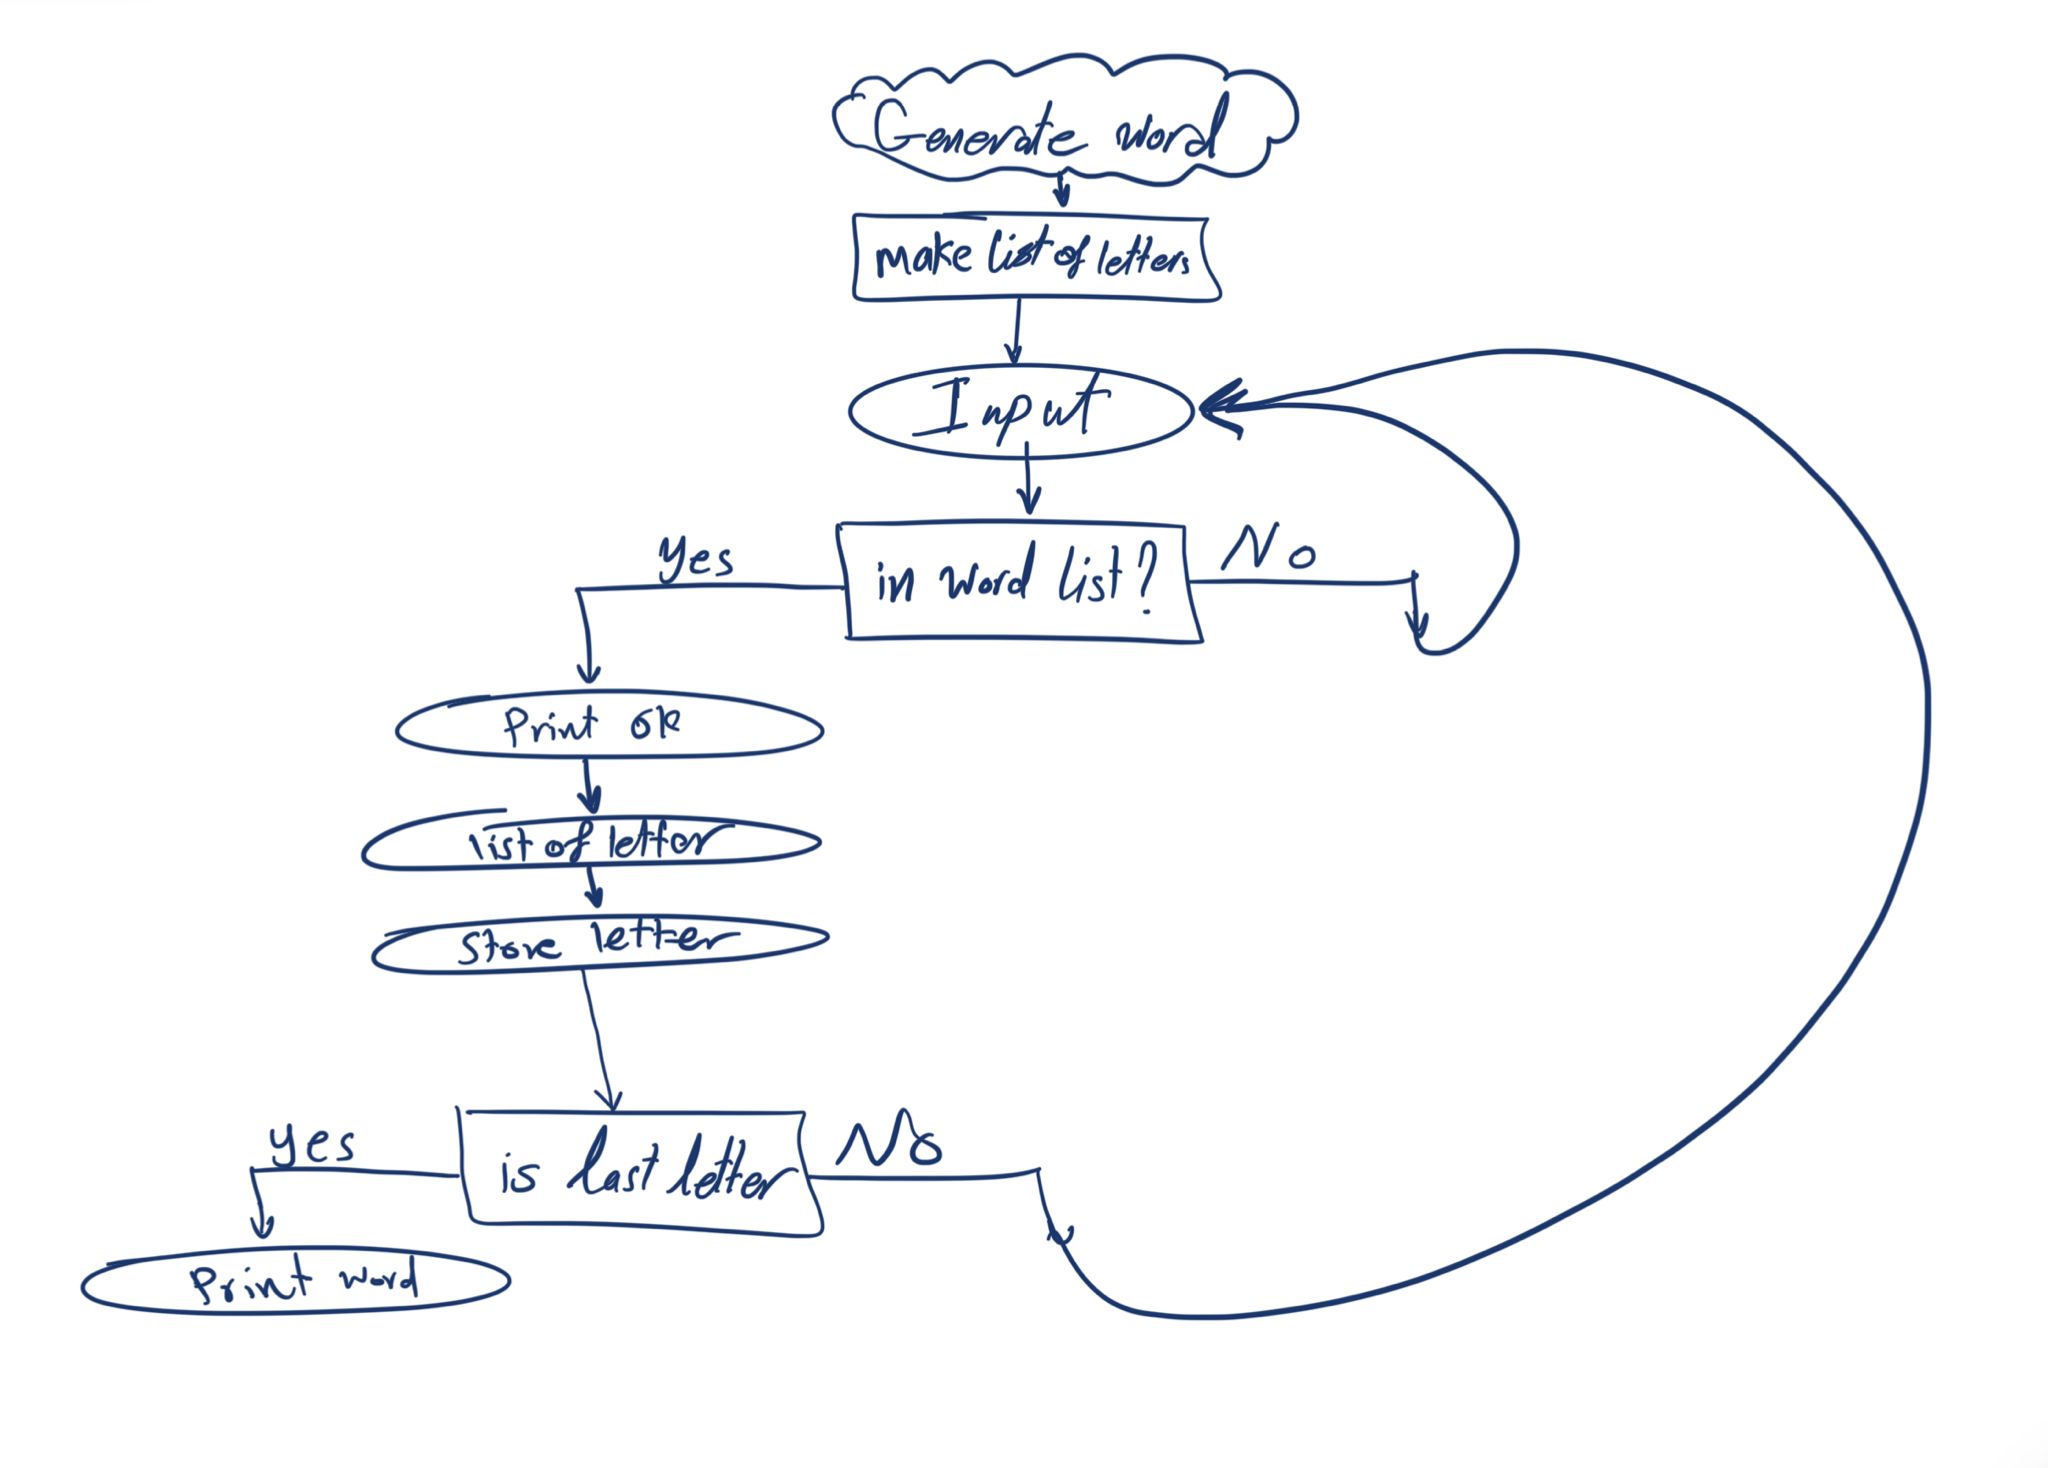 Generate word
make list of letters
Input
Yes
in word list?
No
Print ok
list of letter
Store letter
Yes
is last letter
No
Print word